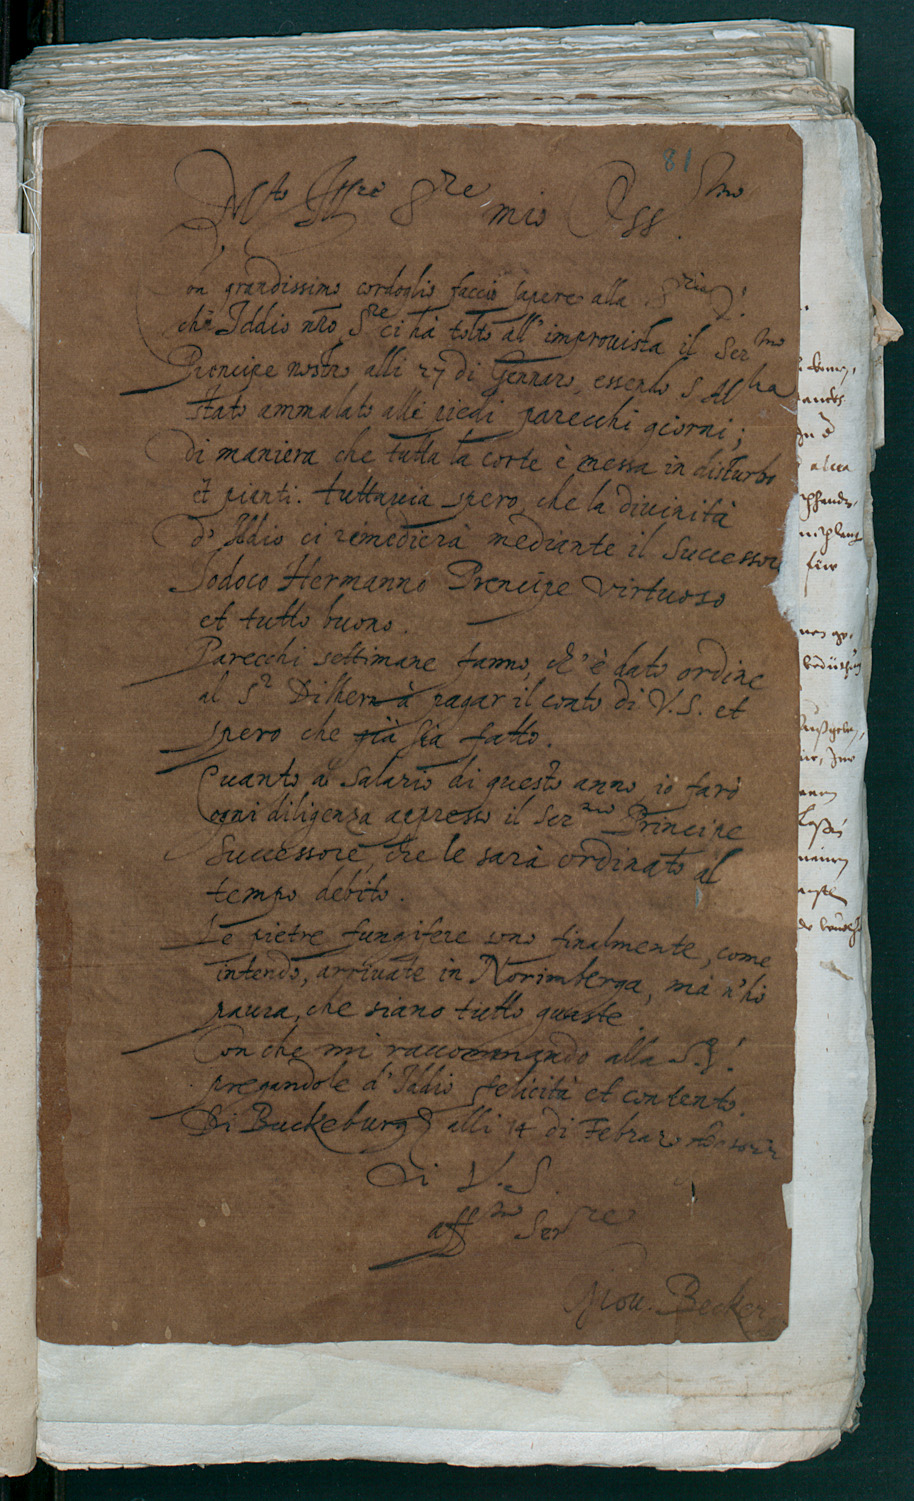 81
Mto Illre Sre mio Oss.mo
Con grandissimo cordoglio faccio sapere alla S.ria V.!
che Iddio nro Sre ci ha tolto all'improuista il Sermo
Prencipe nostro alli 27 di Gennaro, essendo S. Altza
stato ammalato alli piedi parecchi giorni;
di maniera che tutta la corte è messa in disturbo
et pianti. tuttauia spero, che la diuinità
d'Iddio ci remedierà mediante il Successor
Jodoco Hermanno Prencipe virtuoso
et tutto buono.
Parecchi settimane fanno, ch'è dato ordine
al Sr Dilherr à pagar il conto di V.S. et
spero che già sia fatto.
Quanto al salario di questo anno io farò
ogni diligenza appresso il Sermo Principe
Successore, che le sarà ordinato al
tempo debito.
Le pietre fungifere sono finalmente, come
intendo, arriuate in Norimberga, mà n'hò
paura, che siano tutto guaste.
Con che mi raccommando alla S.V.!
pregandole d'Iddio felicità et contento.
Di Buckeburg alli 14 di Febraro
Di V.S.
affmo Serre
Giou. Becker